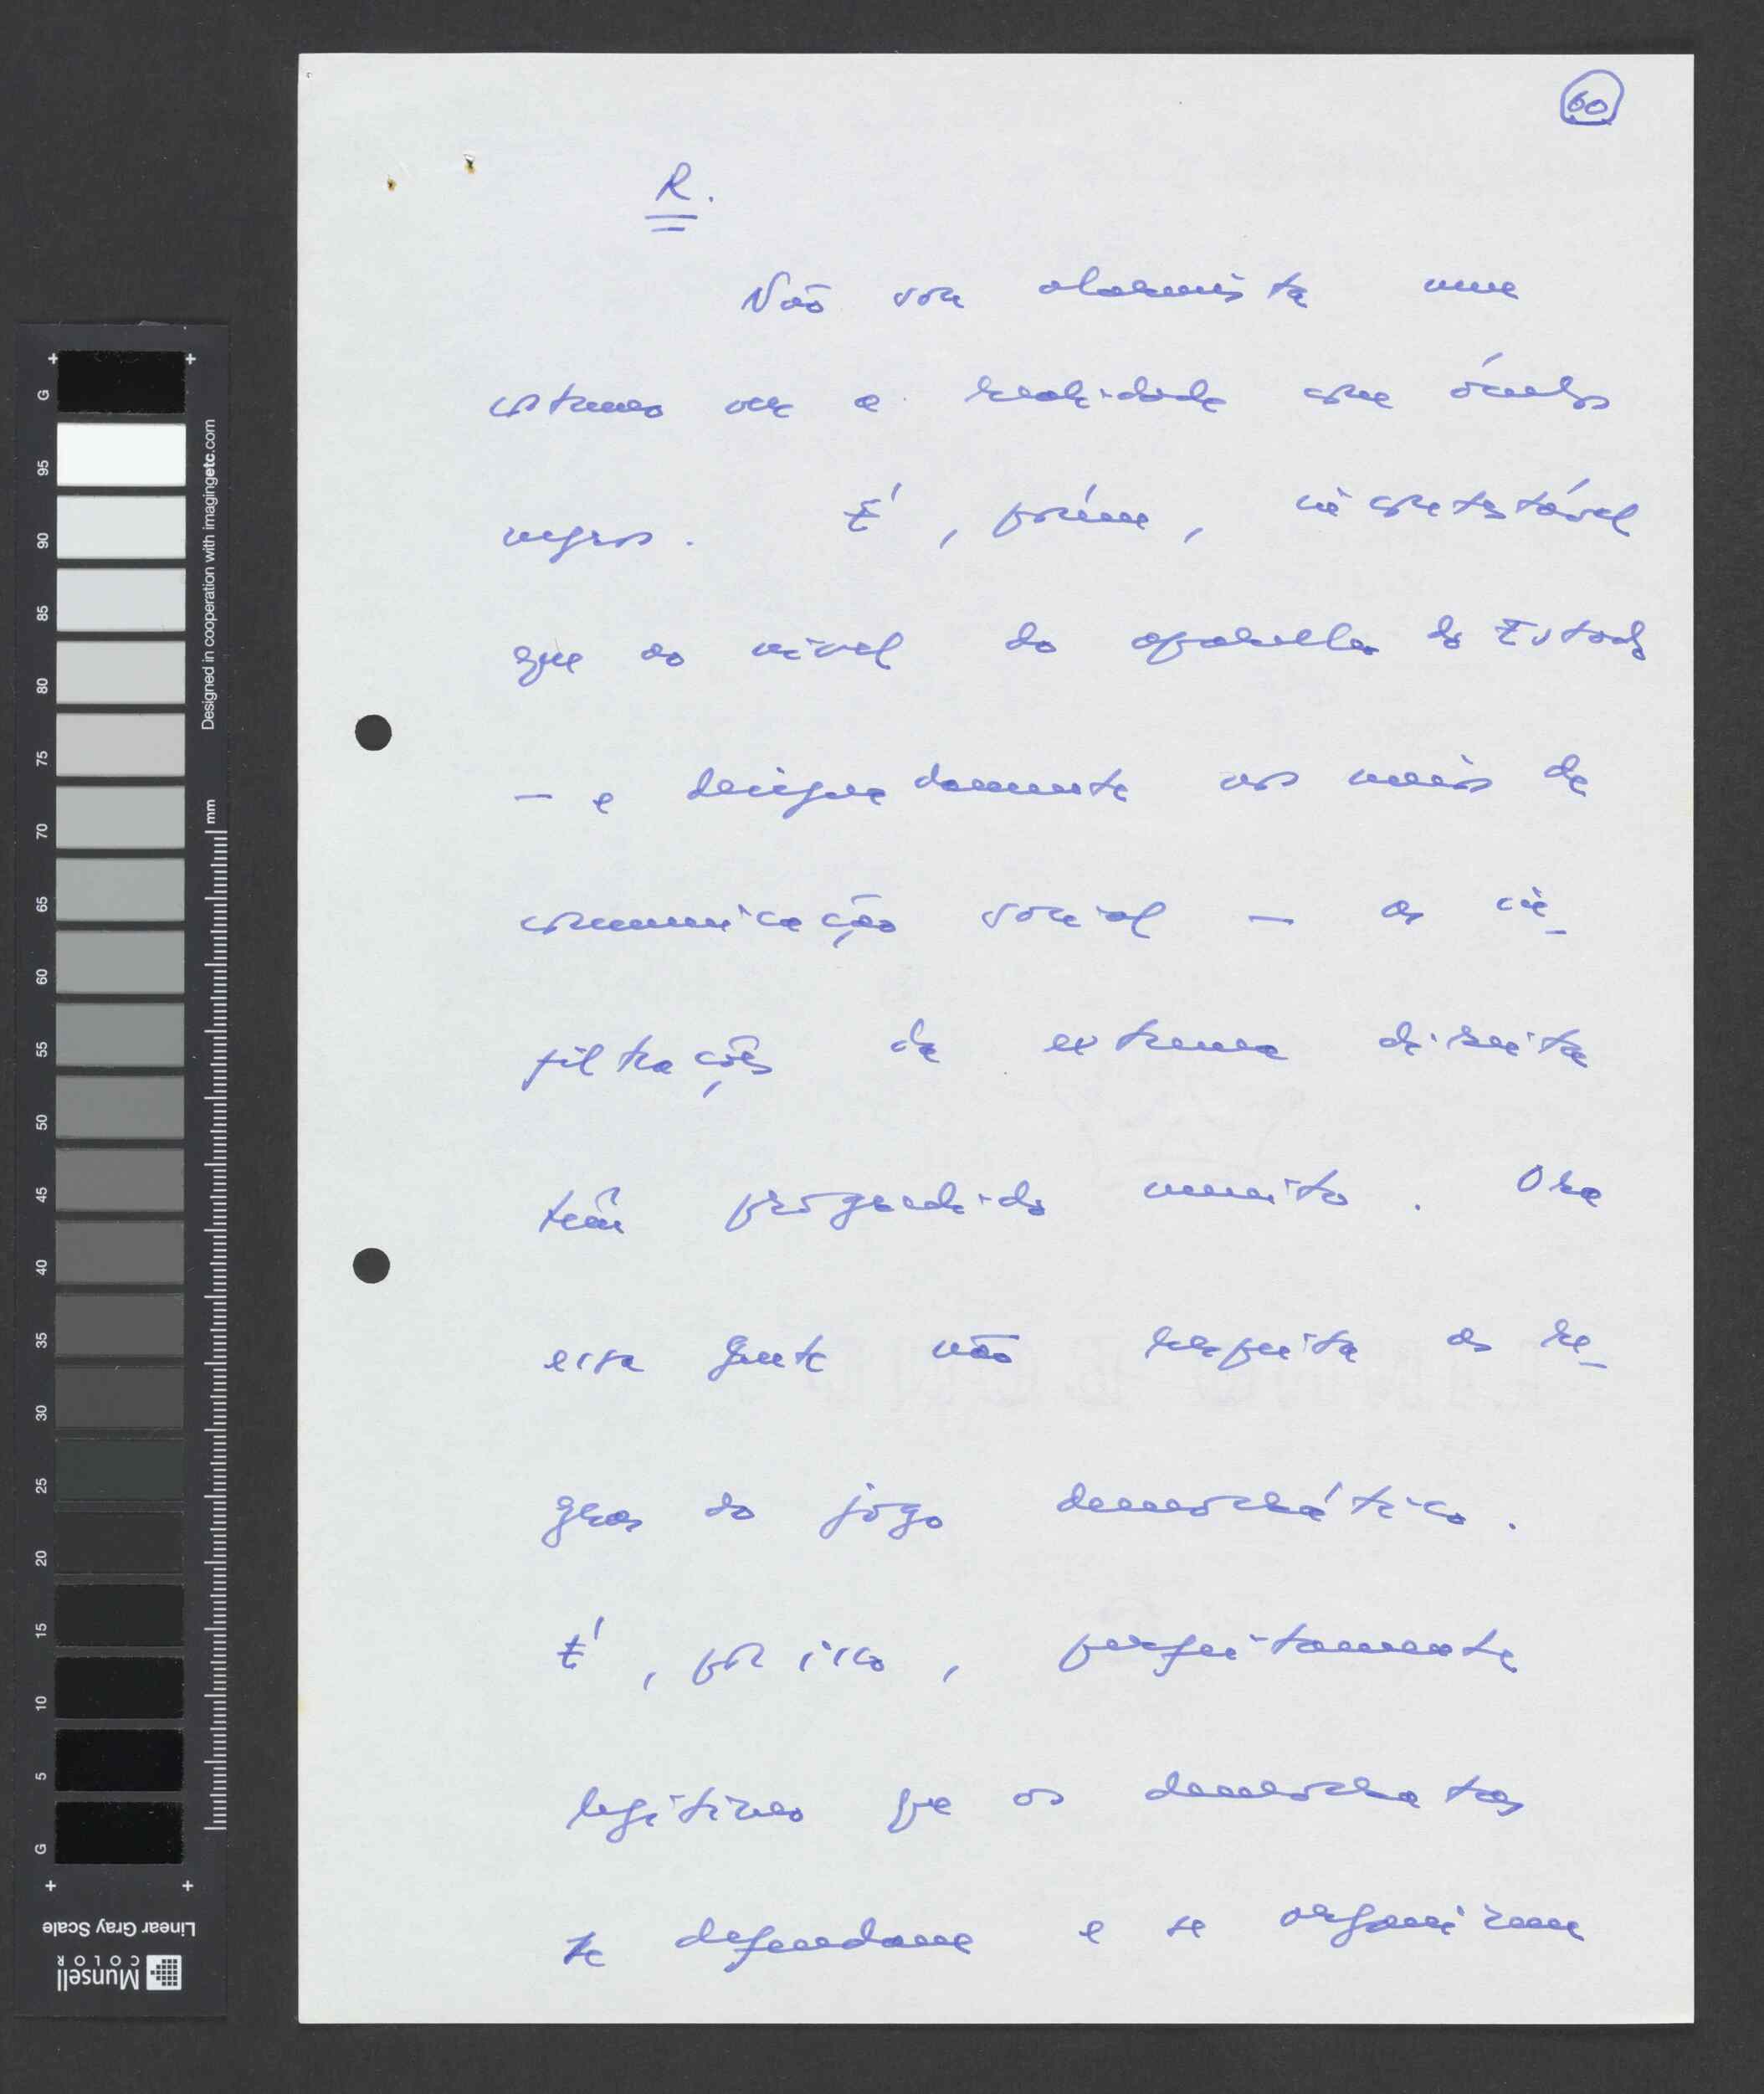 60
R.
Não sou alarmista nem
costumo ver a realidade com óculos
negros. É, porém, incontestável
que ao nível do aparelho do Estado
— e designadamente nos meios de
comunicação social — as in-
filtrações da extrema direita
têm progredido muito. Ora
essa gente não respeita as re-
gras do jogo democrático.
É, por isso, perfeitamente
legítimo que os democratas
se defendam e se organizem
Designed in cooperation with imagingetc.com
mm
G 95 90 85 80 75 70 65 60 55 50 45 40 35 30 25 20 15 10 5 G
Linear Gray Scale
Munsell
COLOR